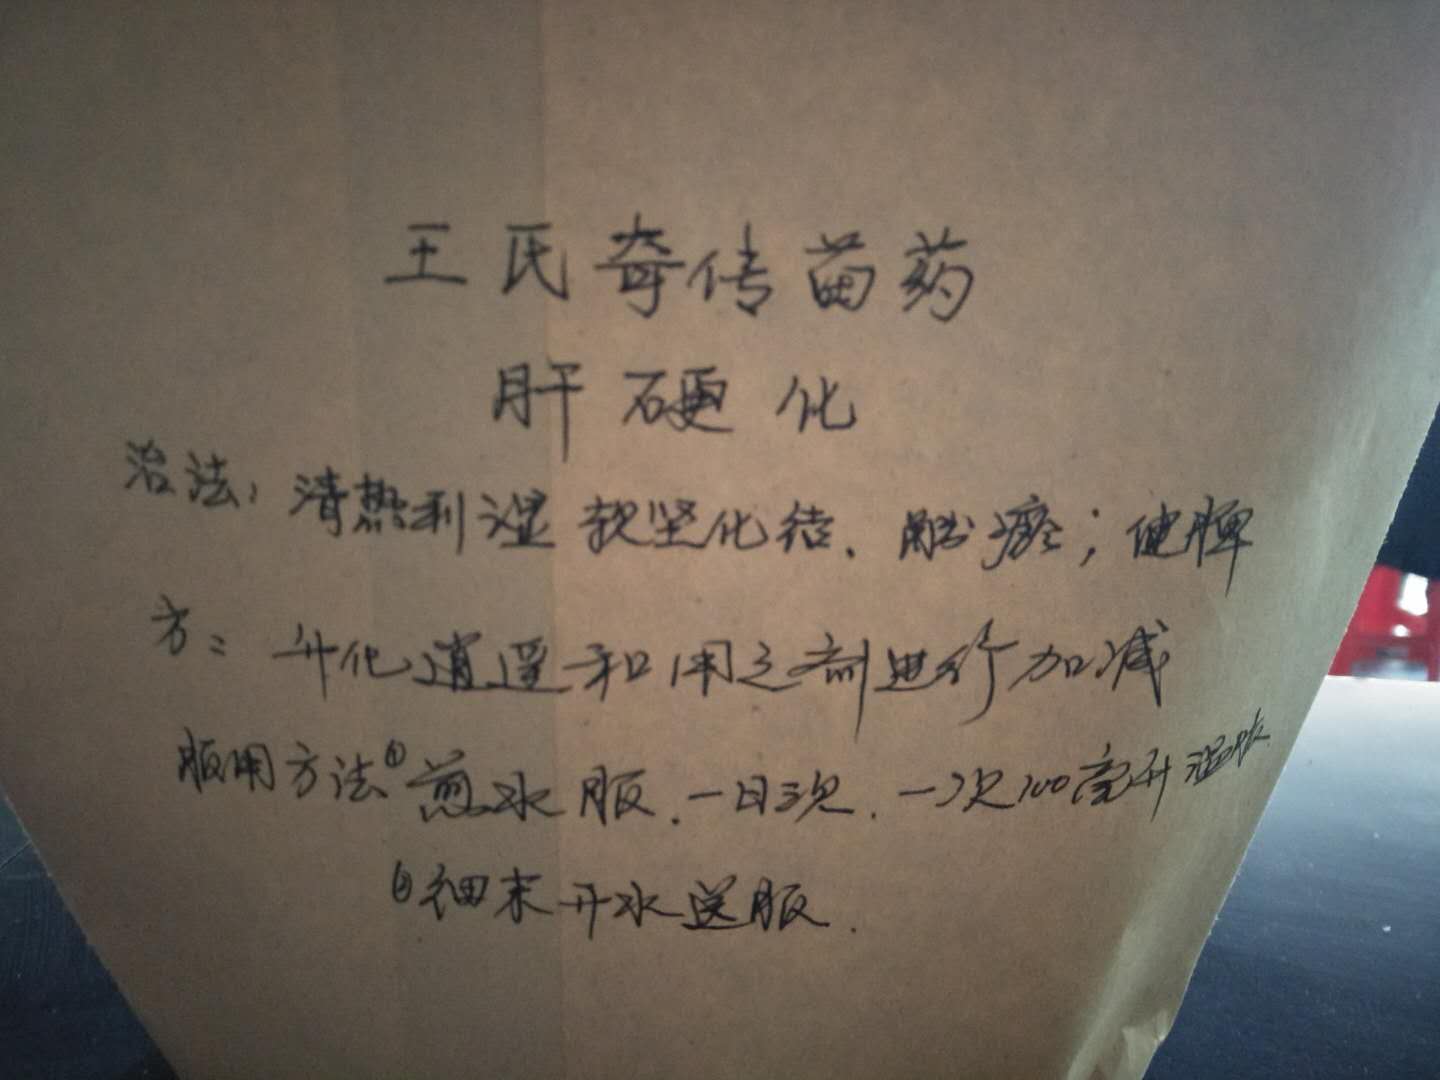 王氏奇传苗药
肝硬化
治法：清热利湿 软坚化结、瘀；健脾
方：升化逍遥和用之剂进行加减
服用方法①煎水服．一日三次．一次100毫升温服
②细末开水送服．